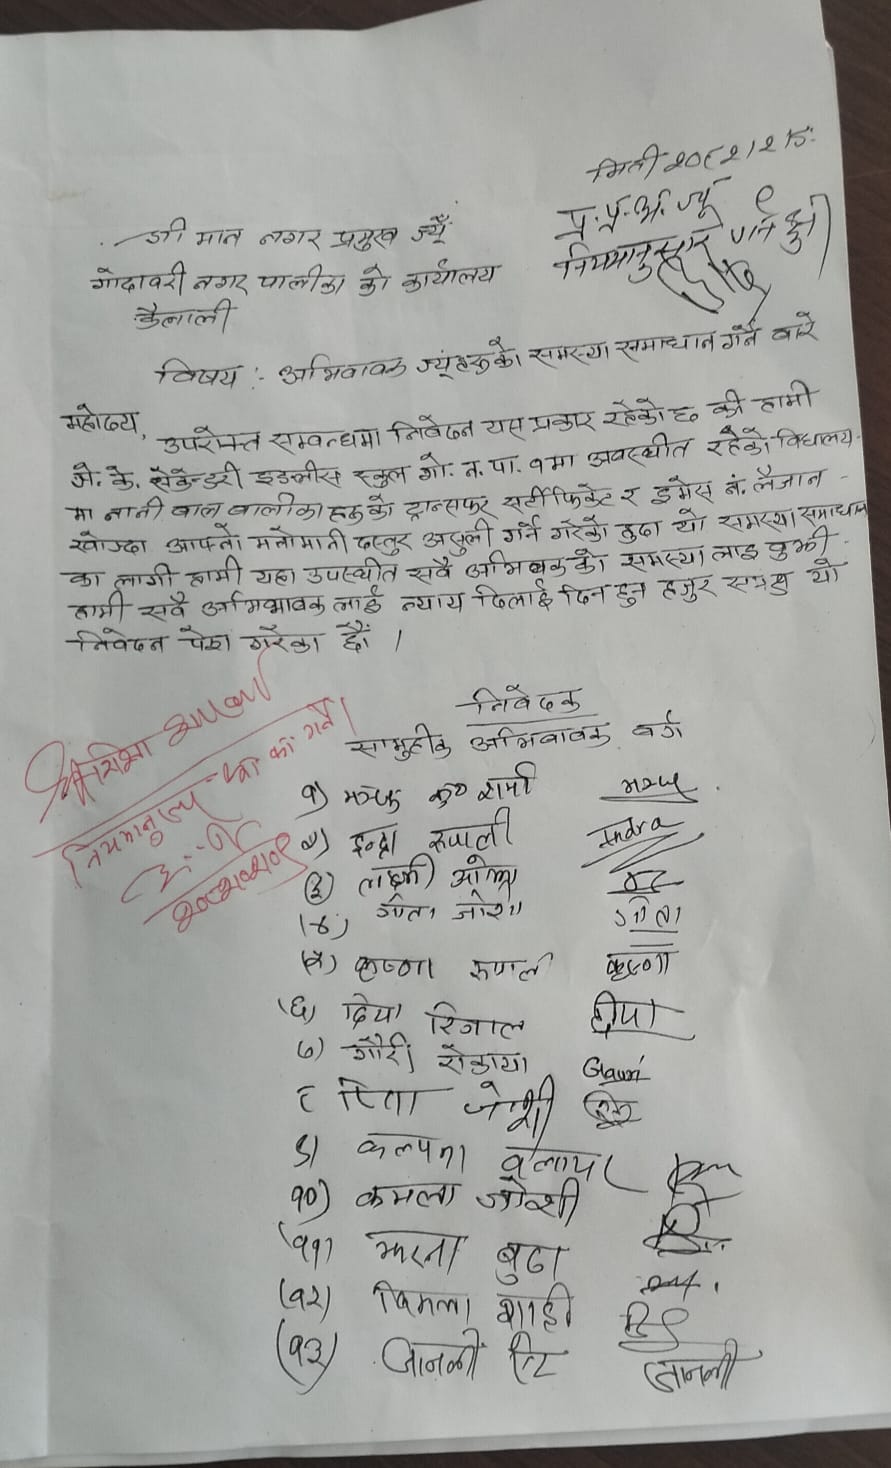 मिती २०८२।२।५
प्र.प्र.अ. ज्यू
नियमानुसार गर्ने हुन
श्री मान नगर प्रमुख ज्यूँ
गोदावरी नगर पालीका को कार्यालय
कैलाली
विषय :- अभिवावक ज्यूहरुको समस्या समाधान गर्ने बारे
महोदय,
उपरोक्त सम्वन्धमा निवेदन यस प्रकार रहेको छ की हामी
जे. के. सेकेन्डरी इङलीस स्कुल गो. न. पा. १ मा अवस्थीत रहेको विधालय-
मा नानी बाल बालीका हरुको ट्रान्सफर सर्टीफिकेट र इमेस नं. लैजान -
खोज्दा आफ्नो मनोमानी दस्तुर असुली गर्ने गरेको हुदा यो समस्या समाधान
का लागी हामी यहा उपस्थीत सवै अभिवकको समस्या लाइ वुझी
हामी सवै अभिभावक लाई न्याय दिलाई दिन हुन हजुर समक्ष यो
निवेदन पेश गरेका छौं ।
निवेदक
सामुहीक अभिवावक वर्ग
१) कु० शर्मा
२) इन्द्रा रुपाली Indra
३) लक्ष्मी
४) गीता जोशी गीता
५) कृष्णा रुपाली कृष्णा
६) दिपा रिजाल दीपा
७) गौरी रोकाया Gauri
८ रिता जोशी
९) कल्पना
१०) कमला जोशी
११) झरना बुढा
१२) विमला शाही
१३) जानकी जानकी